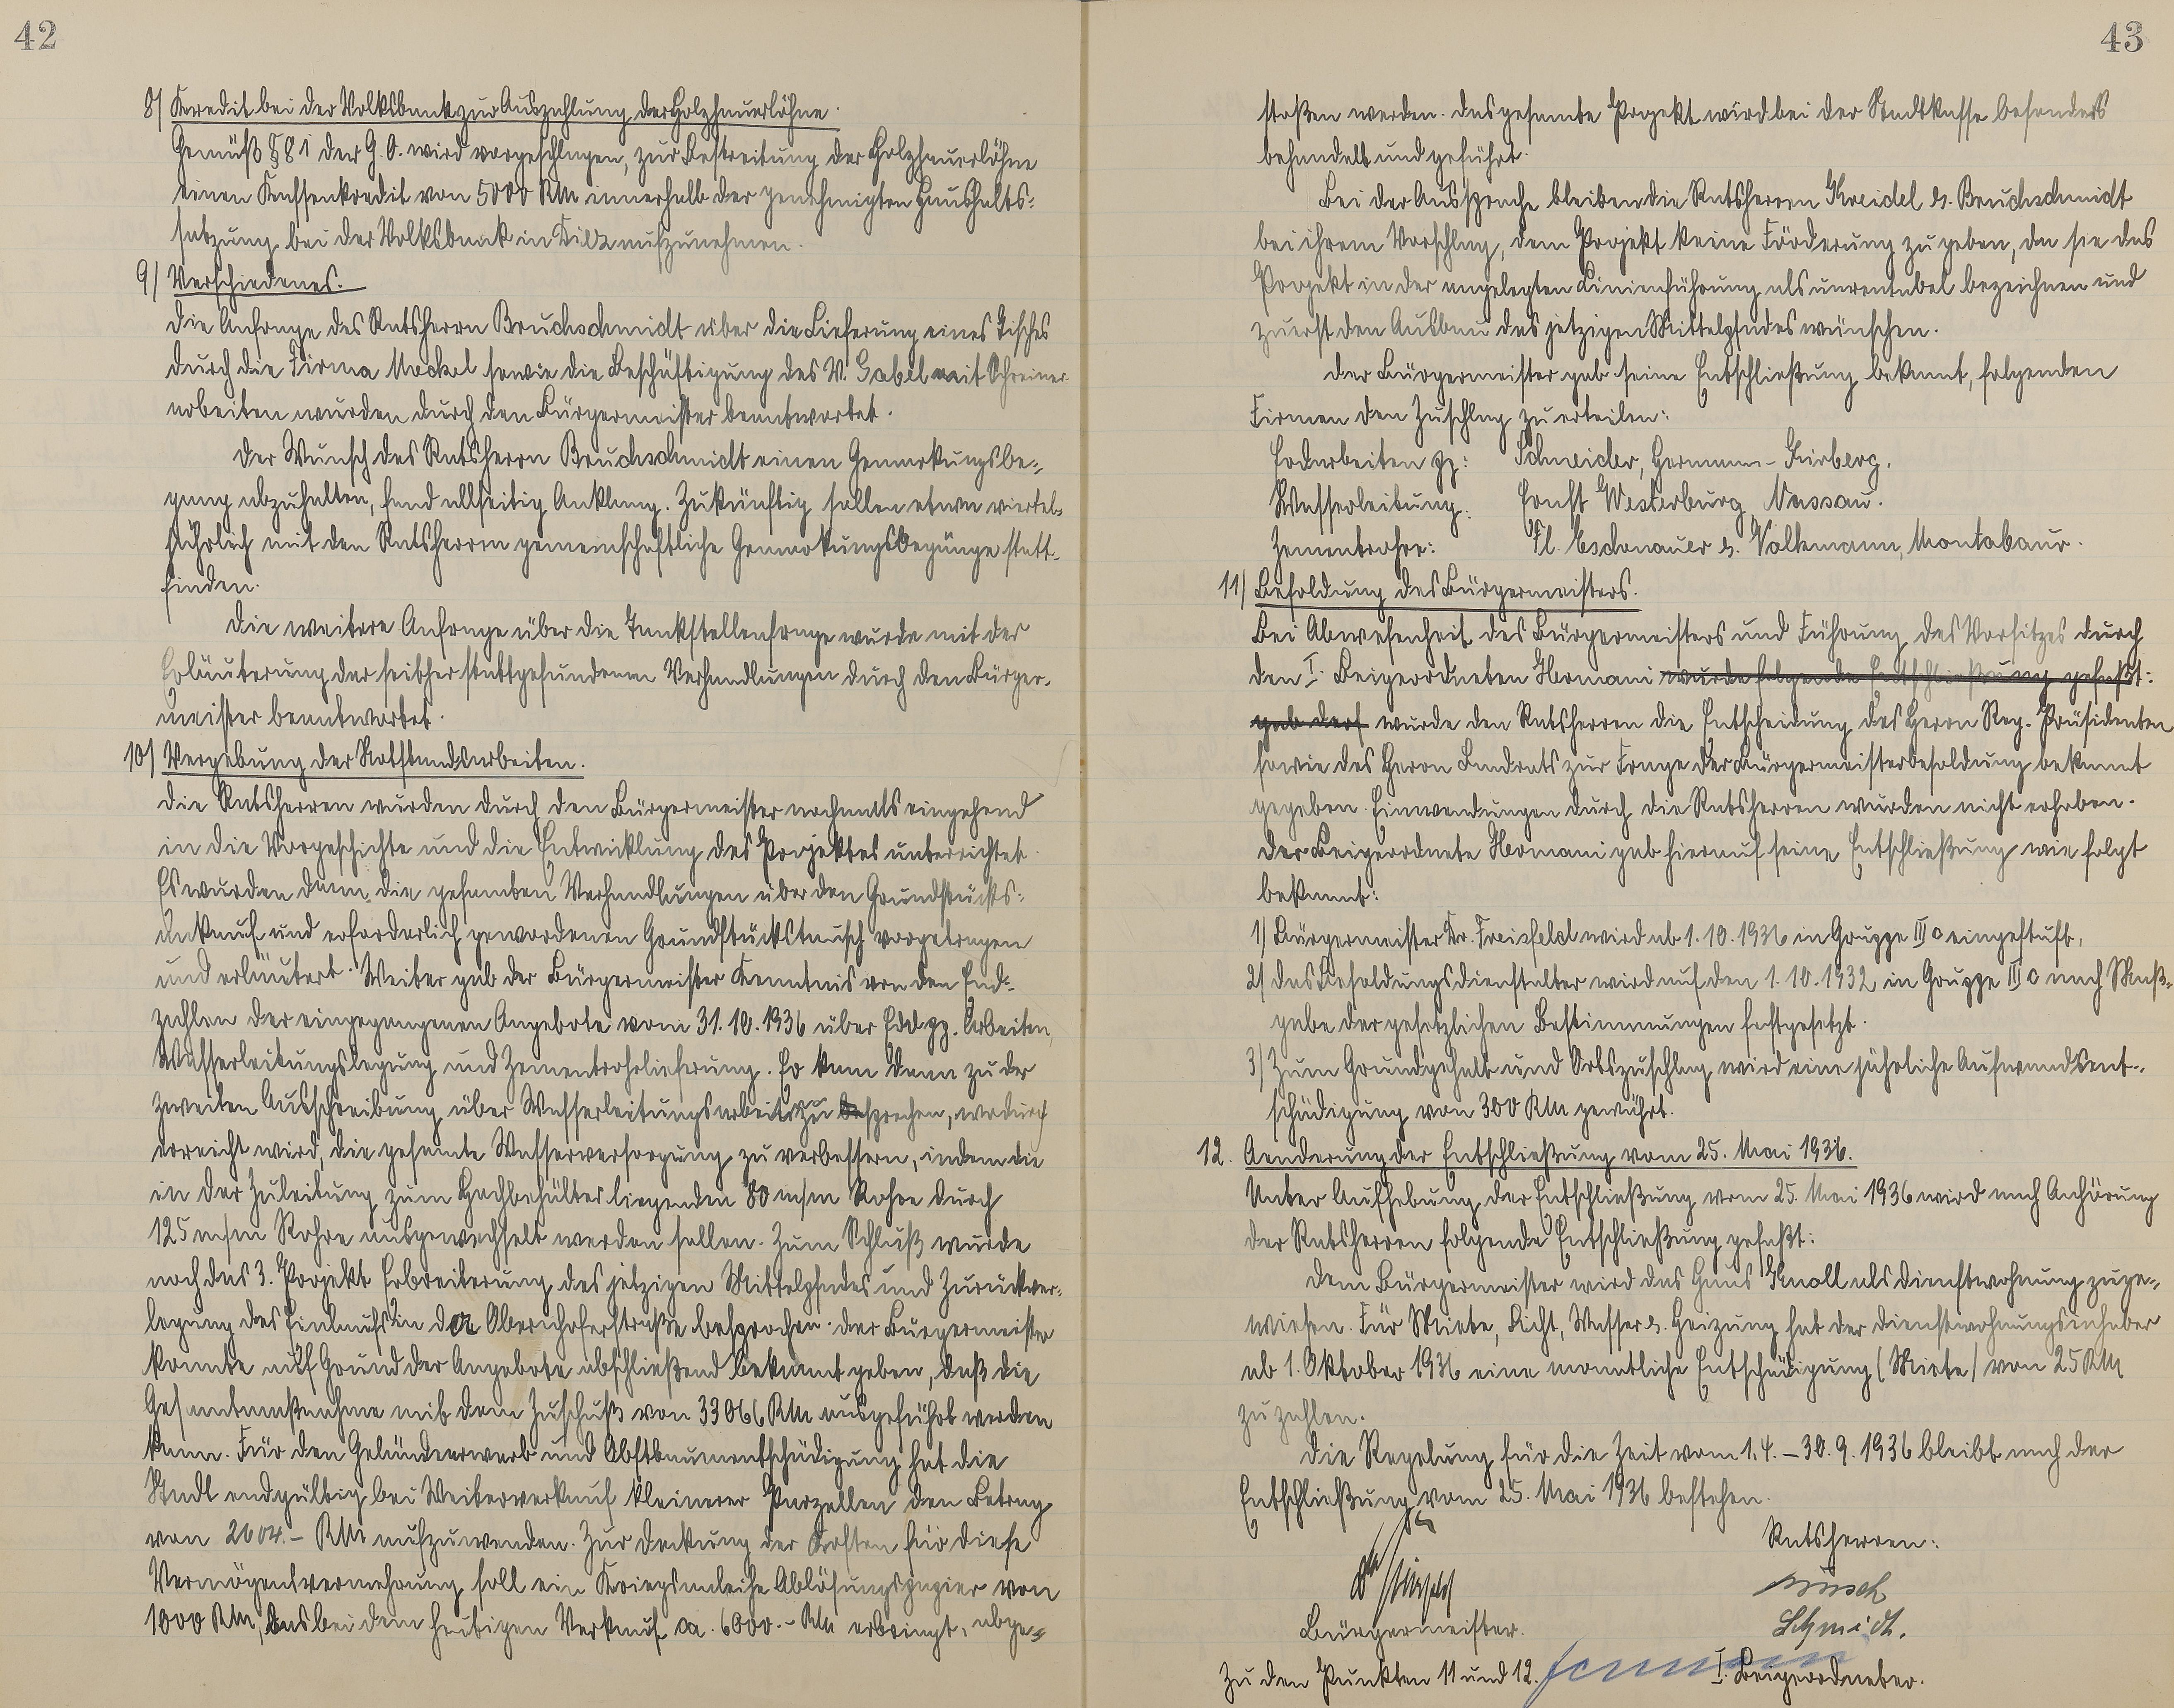 42
8) Kredit bei der Volksbank zur Auszahlung der Holzhauerlöhne.
Gemäß § 81 der G.O. wird vorgeschlagen, zur Bestreitung der Holzhauerlöhne
einen Kassenkredit von 5000 RM innerhalb der genehmigten Haushalts-
satzung bei der Volksbank in Diez aufzunehmen.
9) Verschiedenes.
Die Anfrage des Ratsherrn Bruchschmidt über die Lieferung eines Tisches
durch die Firma Meckel sowie die Beschäftigung des W. Gabel mit Schreiner-
arbeiten wurden durch den Bürgermeister beantwortet.
Der Wunsch des Ratsherrn Bruchschmidt einen Gemarkungsbe-
gang abzuhalten, fand allseitig Anklang. Zukünftig sollen etwa viertel-
jährlich mit den Ratsherren gemeinschaftliche Gemarkungsbegänge statt-
finden.
Die weitere Anfrage über die Tankstellenfrage wurde mit der
Erläuterung der seither stattgefundenen Verhandlungen durch den Bürger-
meister beantwortet.
10) Vergebung der Notstandsarbeiten.
Die Ratsherren wurden durch den Bürgermeister nochmals eingehend
in die Vorgeschichte und die Entwicklung des Projektes unterrichtet.
Es wurden dann die gesamten Verhandlungen über den Grundstücks-
ankauf und erforderlich gewordenen Grundstückstausch vorgetragen
und erläutert. Weiter gab der Bürgermeister Kenntnis von den End-
zahlen der eingegangenen Angebote vom 31.10.1936 über Erd pp. Arbeiten,
Wasserleitungslegung und Zementrohrlieferung. Er kam dann zu der
zweiten Ausschreibung über Wasserleitungsarbeiten zu sprechen, wodurch
erreicht wird, die gesamte Wasserversorgung zu verbessern, indem die
in der Zuleitung zum Hochbehälter liegenden 80 m/m Rohre durch
125 m/m Rohre ausgewechselt werden sollen. Zum Schluß wurde
noch das 3. Projekt Erbreiterung des jetzigen Mittelpfades und Zurückver-
legung des Einlaufs in der Obernhoferstraße besprochen. Der Bürgermeister
konnte auf Grund der Angebote abschließend bekannt geben, daß die
Gesamtmaßnahme mit dem Zuschuß von 33066 RM ausgeführt werden
kann. Für den Geländeerwerb und Obstbaumentschädigung hat die
Stadt endgültig bei Weiterverkauf kleinerer Parzellen den Betrag
von 2604.- RM aufzuwenden. Zur Deckung der Kosten für diese
Vermögensvermehrung soll ein Kriegsanleihe Ablösungspapier von
1000 RM, das bei dem heutigen Verkauf ca. 6000.- RM erbringt, abge-
43
stoßen werden. Das gesamte Projekt wird bei der Stadtkasse besonders
behandelt und geführt.
Bei der Aussprache bleiben die Ratsherren Kreidel u. Bruchschmidt
bei ihrem Vorschlag, dem Projekt keine Förderung zu geben, da sie das
Projekt in der angelegten Linienführung als unrentabel bezeichnen und
zuerst den Ausbau des jetzigen Mittelpfades wünschen.
Der Bürgermeister gab seine Entschließung bekannt, folgenden
Firmen den Zuschlag zu erteilen:
Erdarbeiten pp: Schneider, Hermann - Kirberg.
Wasserleitung: Ernst Westerburg, Nassau.
Zementrohre: Fl. Eschenauer u. Volkmann, Montabaur.
11) Besoldung des Bürgermeisters.
Bei Abwesenheit des Bürgermeisters und Führung des Vorsitzes durch
den I. Beigeordneten Hermani wurde folgende Entschließung gefaßt:
gab ders wurde den Ratsherren die Entscheidung des Herrn Reg. Präsidenten
sowie des Herrn Landrats zur Frage der Bürgermeisterbesoldung bekannt
gegeben. Einwendungen durch die Ratsherren wurden nicht erhoben.
Der Beigeordnete Hermani gab hierauf seine Entschließung wie folgt
bekannt:
1) Bürgermeister Dr. Freisfeld wird ab 1.10.1936 in Gruppe III c eingestuft,
2) das Besoldungsdienstalter wird auf den 1.10.1932 in Gruppe III c nach Maß-
gabe der gesetzlichen Bestimmungen festgesetzt.
3) Zum Grundgehalt und Ortszuschlag wird eine jährliche Aufwandsent-
schädigung von 300 RM gewährt.
12. Aenderung der Entschließung vom 25. Mai 1936.
Unter Aufhebung der Entschließung vom 25. Mai 1936 wird nach Anhörung
der Ratsherren folgende Entschließung gefaßt:
Dem Bürgermeister wird das Haus Knoll als Dienstwohnung zuge-
wiesen. Für Miete, Licht, Wasser u. Heizung hat der Dienstwohnungsinhaber
ab 1. Oktober 1936 eine monatliche Entschädigung (Miete) von 25 RM
zu zahlen.
Die Regelung für die Zeit vom 1.4. - 30.9.1936 bleibt nach der
Entschließung vom 25. Mai 1936 bestehen.
Ratsherren:
Busch
Bürgermeister.
Schmidt.
Zu den Punkten 11 und 12. I. Beigeordneter.